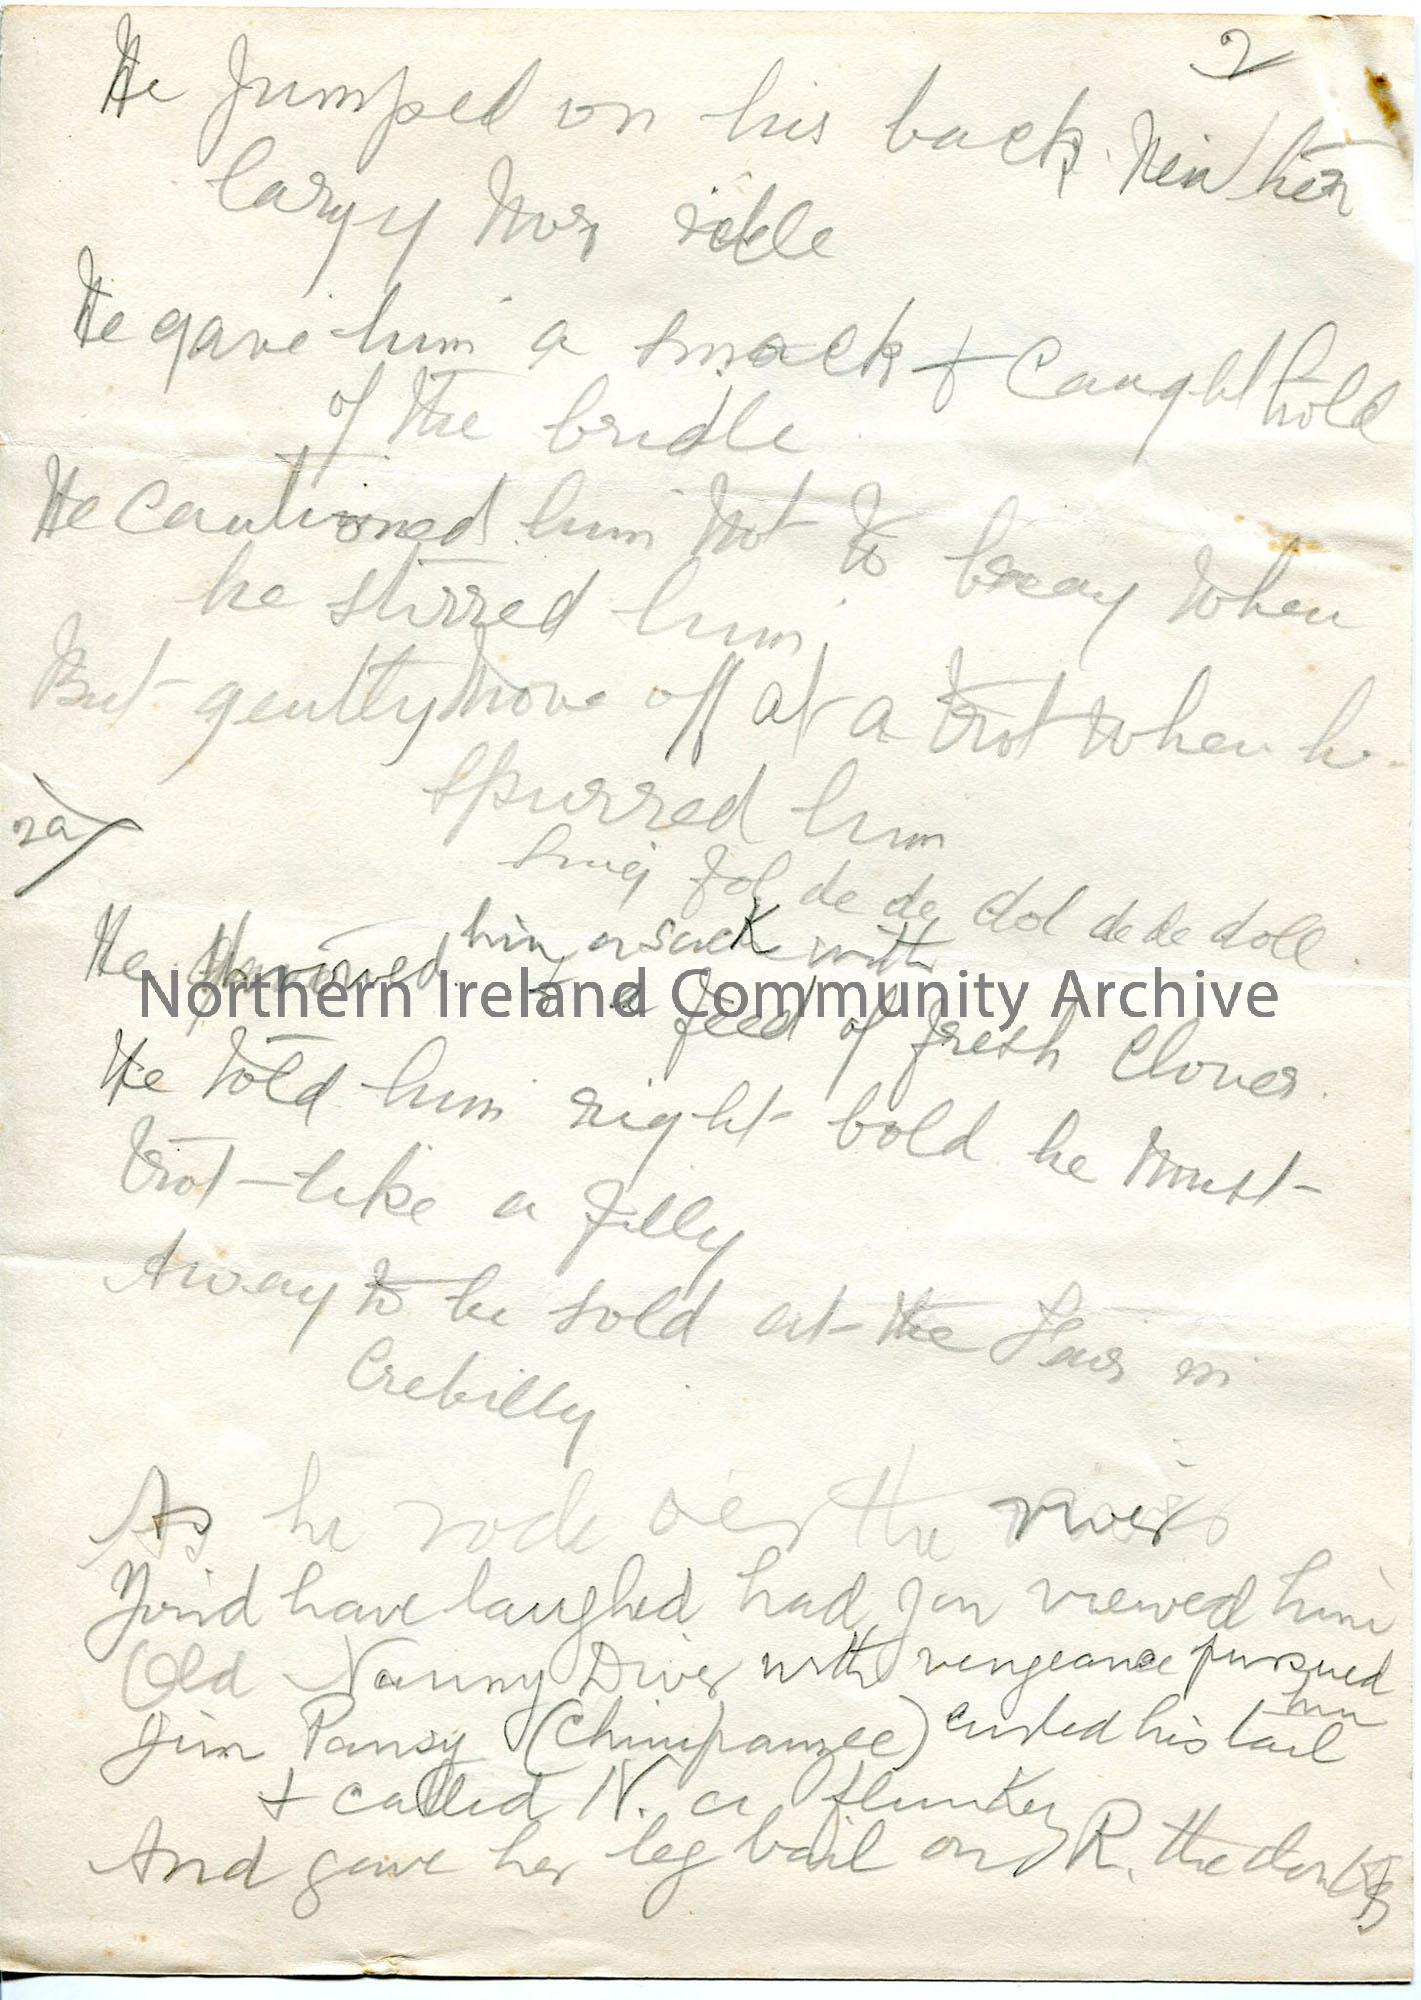 2
He Jumped on his back Neither
lazy nor idle
He gave him a smack & caught hold
of the bridle
He cautioned him not to bray when
he stirred him
But gently move off at a trot when he
spurred him
Sing fol de de dol de de doll.
2a)
He him a sack with
a feed of fresh Clover.
He told him right bold he must
trot like a filly
Away to be sold at the Fair in
Crebilly
As he rode o'er the river
You'd have laughed had you viewed him
Old Nanny Diver with vengeance pursued
him
Jim Pansy (Chimpanzee) curled his tail
& called N. a flunkey
And gave her leg bail on R. the donkey
Northern Ireland Community Archive